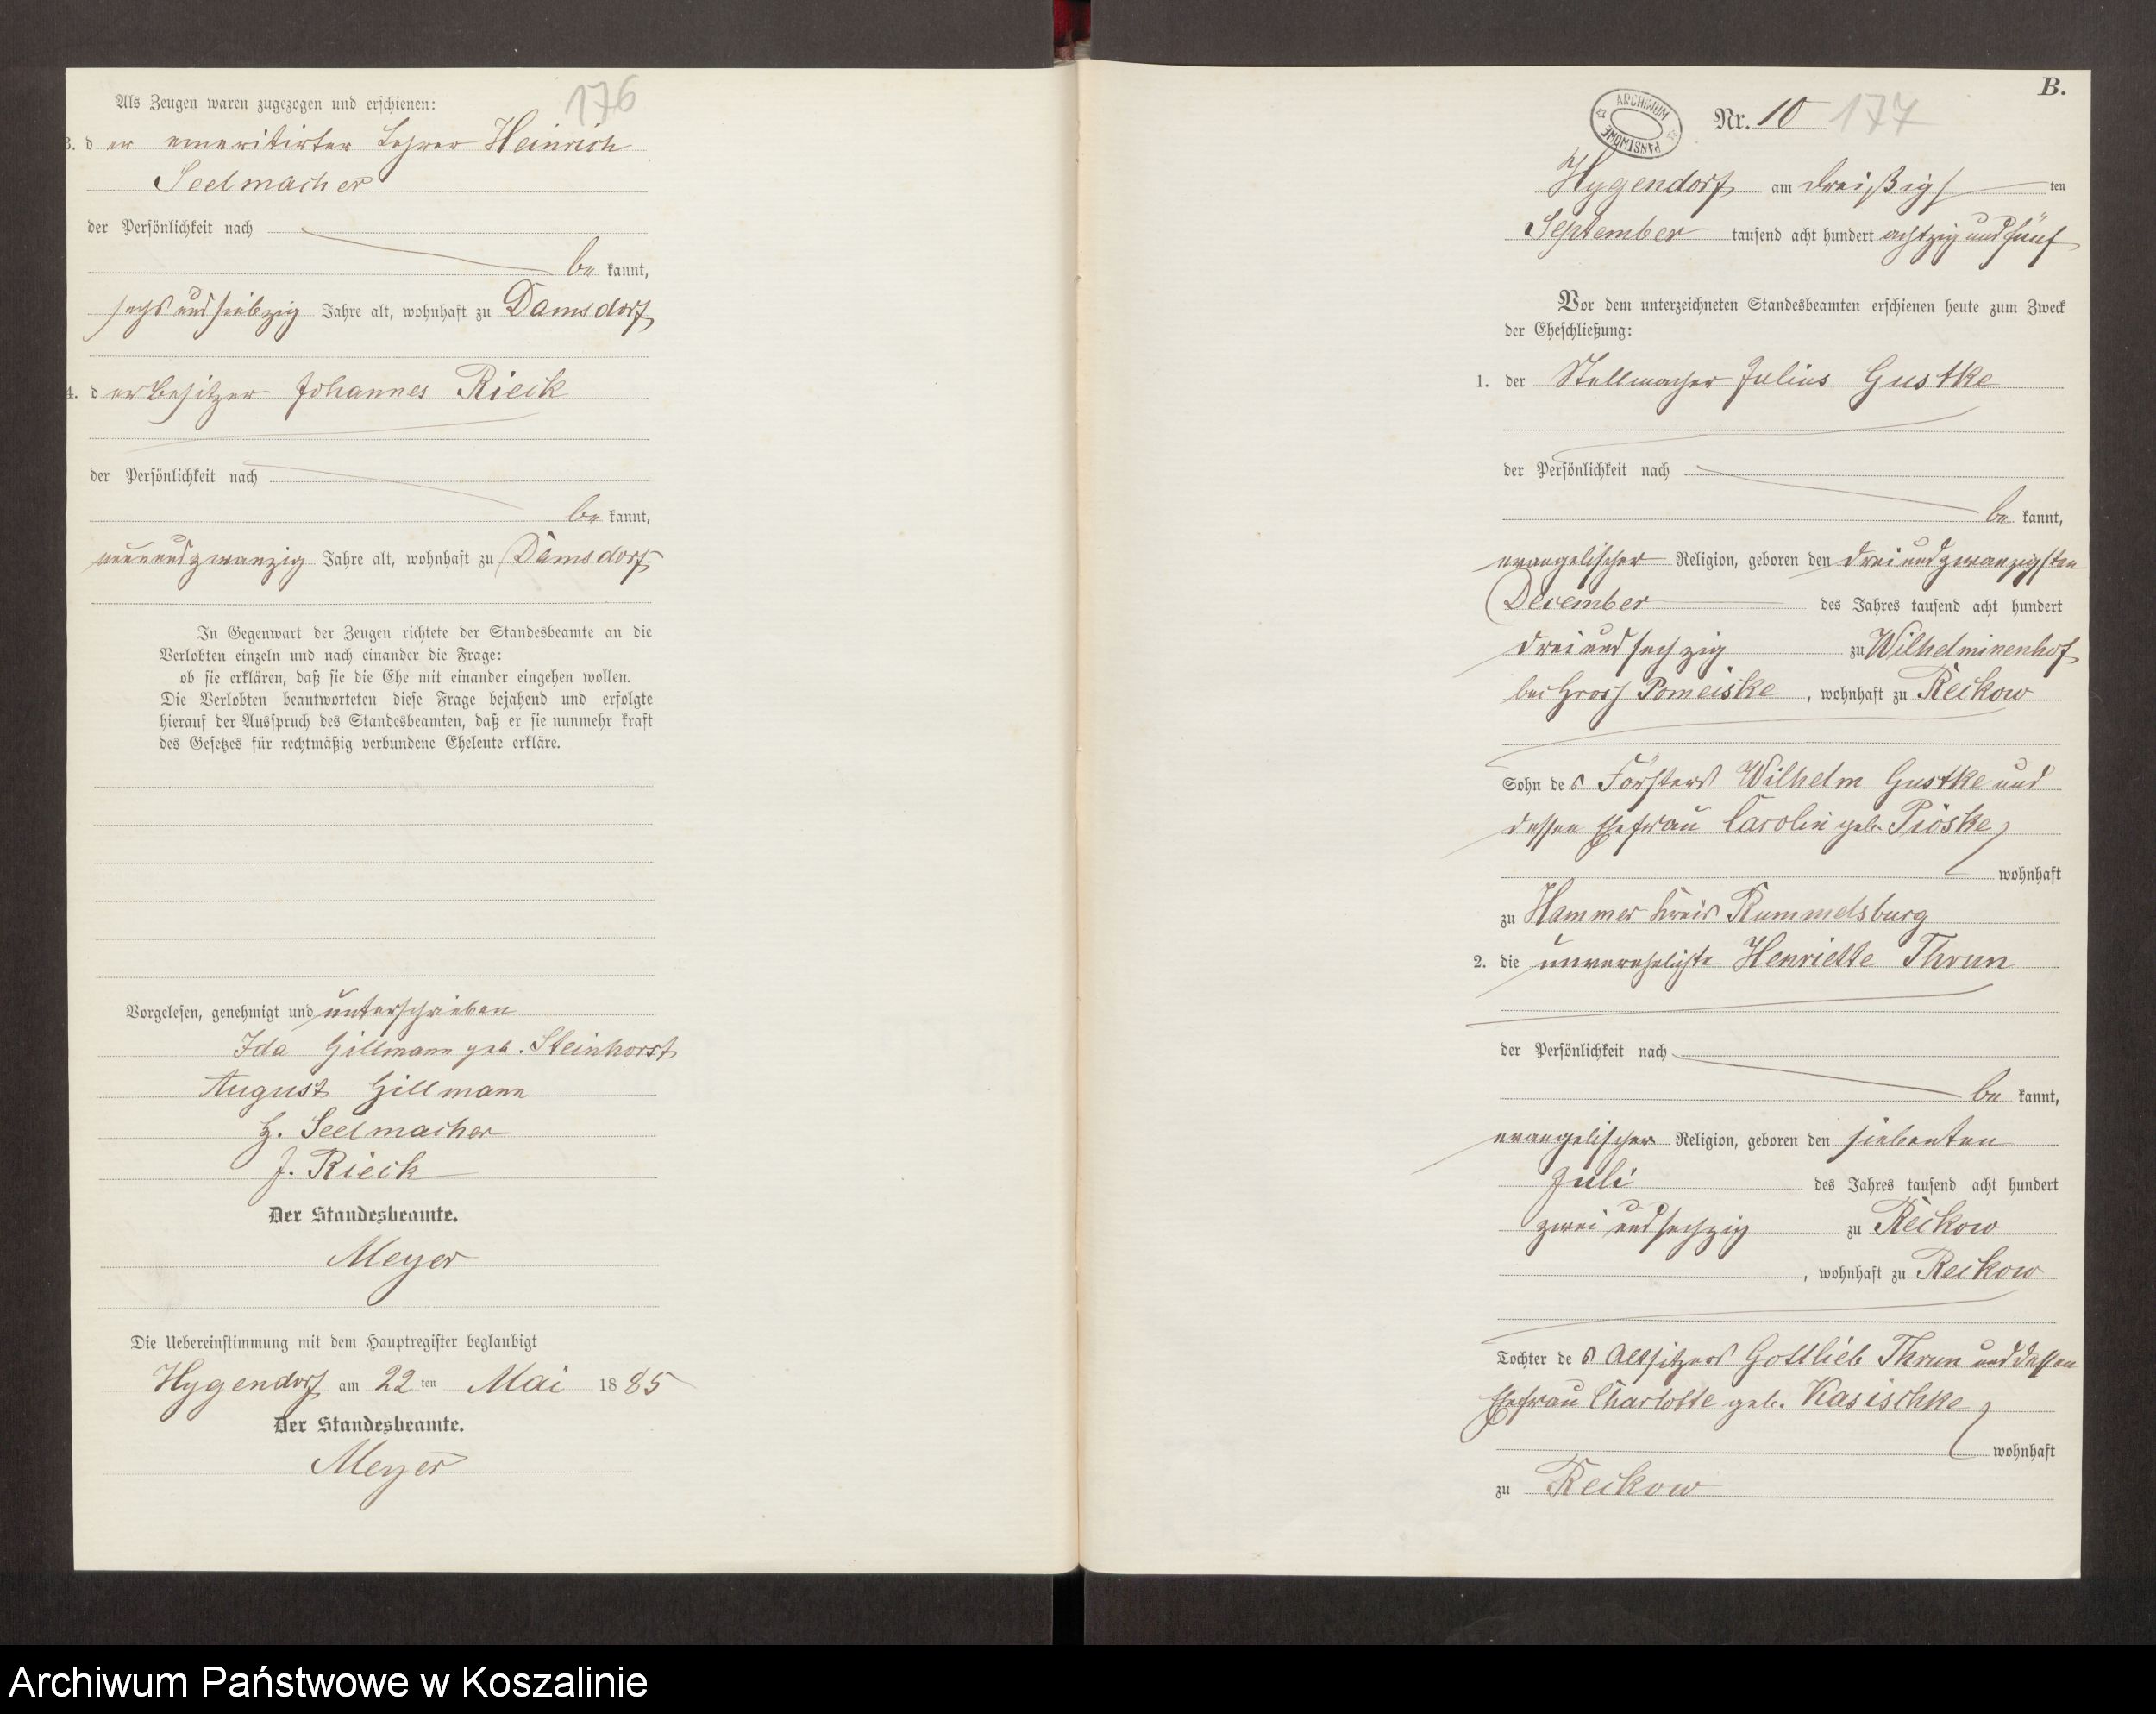 Als Zeugen waren zugezogen und erschienen:
176
3. der emeritirter Lehrer Heinrich
Seelmacher
der Persönlichkeit nach
be kannt,
sechs und siebzig Jahre alt, wohnhaft zu Damsdorf
4. der Besitzer Johannes Rieck
der Persönlichkeit nach
be kannt,
neunundzwanzig Jahre alt, wohnhaft zu Damsdorf
In Gegenwart der Zeugen richtete der Standesbeamte an die
Verlobten einzeln und nach einander die Frage:
ob sie erklären, daß sie die Ehe mit einander eingehen wollen.
Die Verlobten beantworteten diese Frage bejahend und erfolgte
hierauf der Ausspruch des Standesbeamten, daß er sie nunmehr kraft
des Gesetzes für rechtmäßig verbundene Eheleute erkläre.
Vorgelesen, genehmigt und unterschrieben
Ida Gillmann geb. Steinhorst
August Gillmann
H. Seelmacher
J. Rieck
Der Standesbeamte.
Meyer
Die Uebereinstimmung mit dem Hauptregister beglaubigt
Hygendorf am 22 ten Mai 18 85
Der Standesbeamte.
Meyer
B.
ARCHIWUM PAŃSTWOWE
Nr. 10 177
Hygendorf am dreißigs ten
September tausend acht hundert achtzig und fünf
Vor dem unterzeichneten Standesbeamten erschienen heute zum Zweck
der Eheschließung:
1. der Stellmacher Julius Gustke
der Persönlichkeit nach
be kannt,
evangelischer Religion, geboren den dreiundzwanzigsten
December des Jahres tausend acht hundert
drei und sechzig zu Wilhelminenhof
bei Gross Pomeiske, wohnhaft zu Reckow
Sohn des Försters Wilhelm Gustke und
dessen Ehefrau Carolin geb. Pioske
wohnhaft
zu Hammer Kreis Rummelsburg
2. die unverehelichte Henriette Thrun
der Persönlichkeit nach
be kannt,
evangelischer Religion, geboren den siebenten
Juli des Jahres tausend acht hundert
zwei und sechzig zu Reckow
, wohnhaft zu Reckow
Tochter des Altsitzers Gottlieb Thrun und dessen
Ehefrau Charlotte geb. Kasischke
wohnhaft
zu Reckow
Archiwum Państwowe w Koszalinie